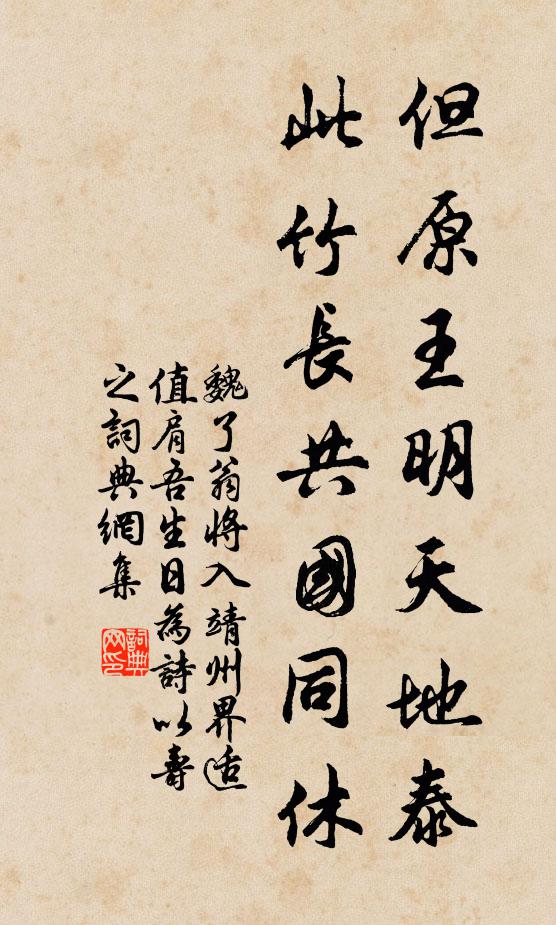 但原王明天地泰
此竹長共國同休
魏了翁將入靖州界适
值肩吾生日為詩以壽
之詞典網集
詞典网印